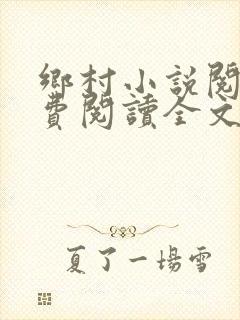 鄉村小說閱
費閱讀全文
夏了一場雪